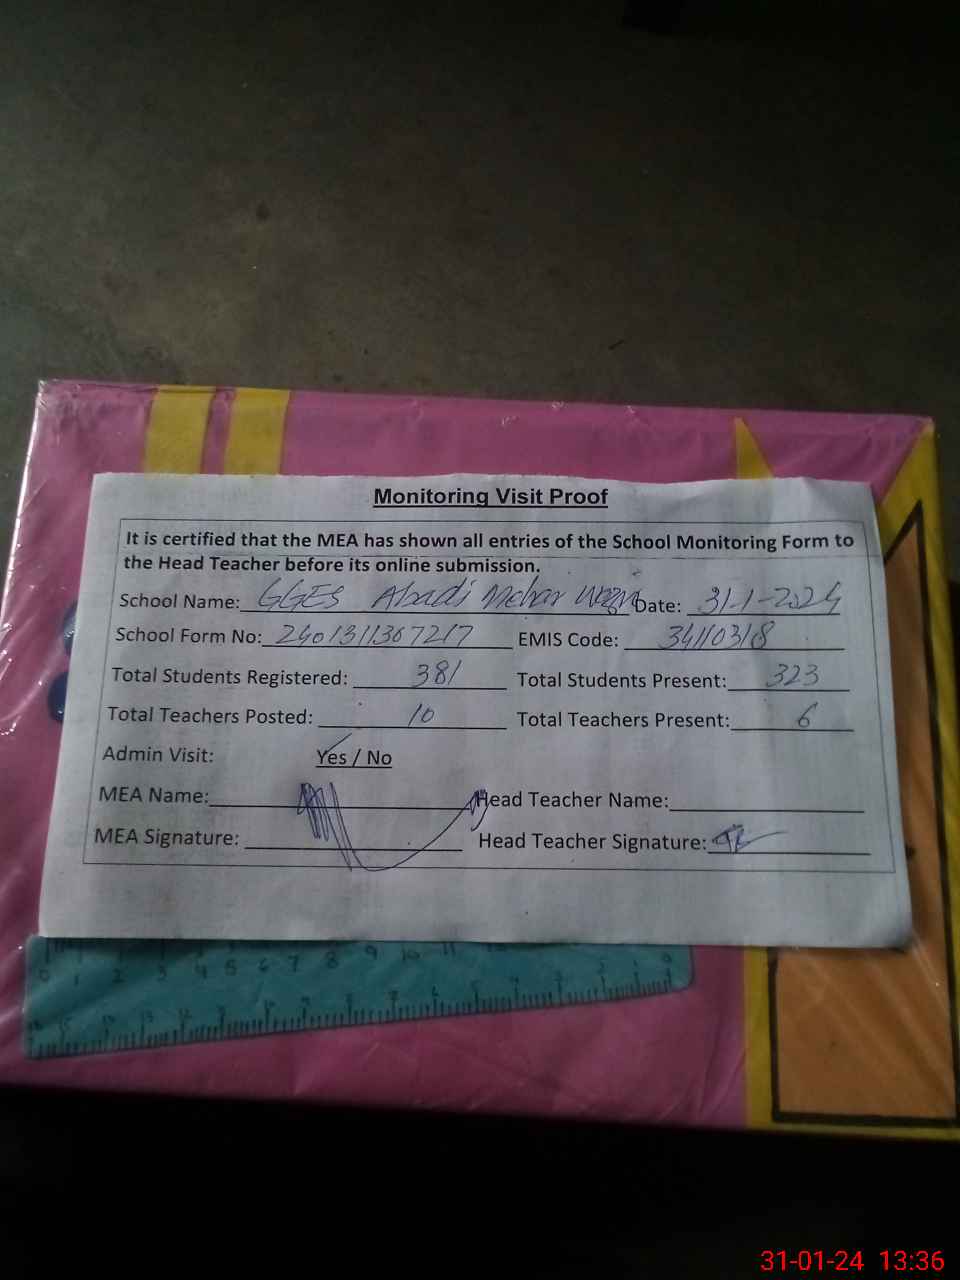 Monitoring Visit Proof
It is certified that the MEA has shown all entries of the School Monitoring Form to
the Head Teacher before its online submission.
School Name: GGES Abadi Mehar Date: 31-1-2024
School Form No: 2401311367217 EMIS Code: 34110318
Total Students Registered: 381 Total Students Present: 323
Total Teachers Posted: 10 Total Teachers Present: 6
Admin Visit: Yes / No
MEA Name: Head Teacher Name:
MEA Signature: Head Teacher Signature:
0 1 2 3 4 5 6 7 8 9 10 11
31-01-24 13:36